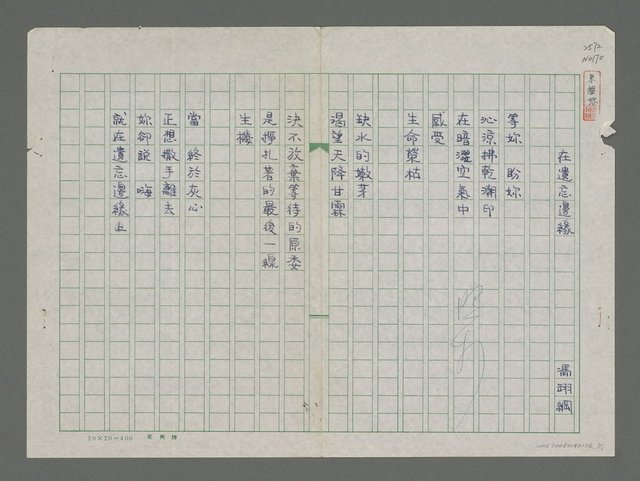 2572
N0170
在遺忘邊緣
馮翊綱
等妳 盼妳
沁涼拂乾潮印
在暗濕空氣中
感受
生命榮枯
缺水的嫩芽
渴望天降甘霖
決不放棄等待的原委
是掙扎著的最後一線
生機
當 終於灰心
正想撒手離去
妳卻說 嗨
就在遺忘邊緣上
20×20=400